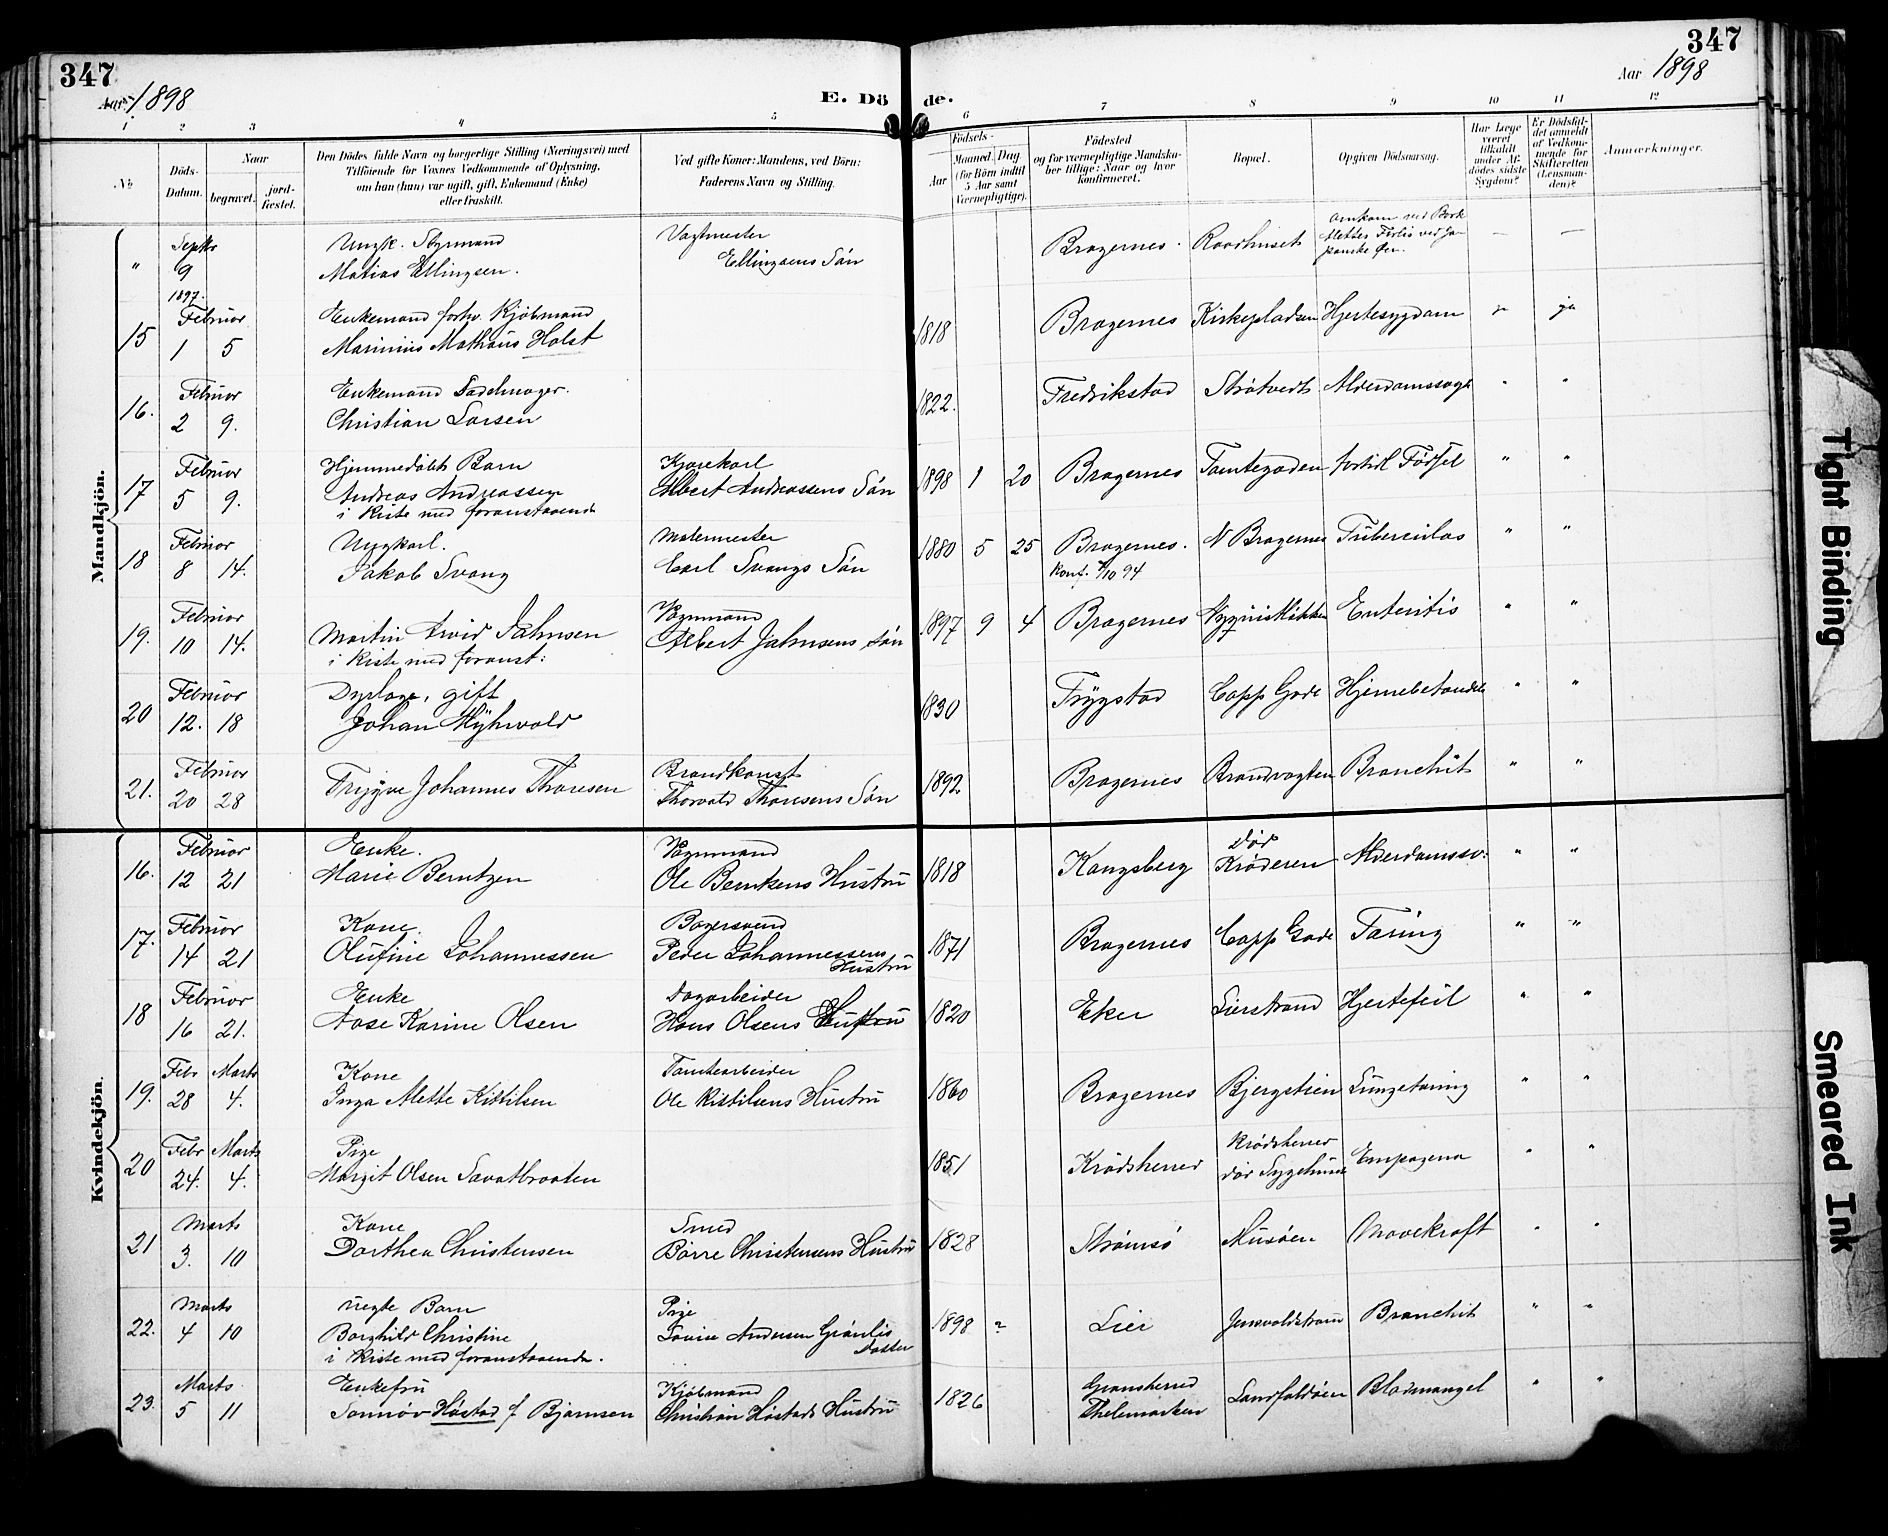 347
Aar 1898
E. Dö de.
347
Aar 1898
1 2 3 4 5 6 7 8 9 10 11 12
№
Döds-Datum.
Naar
begravet.
jordfæstet.
Den Dödes fulde Navn og borgerlige Stilling (Næringsvei) med
Tilföiende for Voxnes Vedkommende af Oplysning,
om han (hun) var ugift, gift, Enkemand (Enke)
eller fraskilt.
Ved gifte Koner: Mandens, ved Börn:
Faderens Navn og Stilling.
Födsels-
Aar
Maaned. Dag
(for Börn indtil
5 Aar samt
Værnepligtige).
Födested
og for værnepligtige Mandska-
ber tillige: Naar og hvor
konfirmeret.
Bopæl.
Opgiven Dödsaarsag.
Har Læge
været
tilkaldt
under Af-
dödes sidste
Sygdom?
Er Dödsfal-
det anmeldt
af Vedkom-
mende for
Skifteretten
(Lensman-
den)?
Anmærkninger.
Mandkjön.
" Septbr 9 1897. Ungk. Styrmand
Matias Ellingsen.
Vagtmester
Ellingsens Sön
Bragernes. Raadhuset
Omkom ved Bark
Mettes Forlis ved Ja-
panske Øer. — —
15 Februar 1 5 Enkemand forhv. Kjöbmand
Marinius Mathäus Holst
1818 Bragernes Kirkepladsen Hjertesygdom ja
16. Februar 2 9. Enkemand Sadelmager.
Christian Larsen
1822. Fredrikstad Strötvedt " "
17 Februar 5 9. Hjemmedöbt Barn
Andreas Andreassen
i Kiste med foranstaaende
Kjørekarl
Albert Andreassens Sön
1898 1 20 Bragernes Tomtegaden fortidl Födsel " "
18 Februar 8 14. Ungkarl.
Jakob Svang
Malermester
Carl Svangs Sön
1880 5 25 Bragernes.
Konf. /10 94
N Bragernes Tuberculos " "
19. Februar 10 14. Martin Arvid Jahnsen
i Kiste med foranst:
Vognmand
Albert Jahnsens Sön
1897 9 4 Bragernes Enteritis " "
20 Februar 12. 18 Dyrlæge, gift
Johan Myhrvold
1830 Trygstad Capp Gade " "
21. Februar 20 28 Trygve Johannes Thoresen
Brandkonst
Thorvald Thoresens Sön
1892 Bragernes Brandvagten Bronchit " "
Kvindekjön.
16. Februar 12 21 Enke.
Marie Berntzen
Vognmand
Ole Berntzens Hustru
1818 Kongsberg
död
Kröderen Alderdomssv: " "
17. Februar 14 21 Kone.
Olufine Johannessen
Bagersvend
Peder Johannessens
Hustru
1871 Bragernes Capp Gade Tæring " "
18 Februar 16 21. Enke
Aase Karine Olsen
Dagarbeider
Hans Olsens Hustru
1820 Eker Lierstrand Hjertefeil " "
19. Febr 28 Marts 4. Kone
Inga Mette Kittilsen
Tomtearbeider
Ole Kittilsens Hustru
1860 Bragernes Bjergstien Lungetæring " "
20 Febr 24. Marts 4. Pige
Margit Olsen Savatbraaten
1851 Krödsherred
Krödsherred
död Sygehuset " "
21 Marts 3. 10 Kone
Dorthea Christensen
Smed
Börre Christensens Hustru
1828 Strömsö Musöen Mavekræft " "
22. Marts 4 10 uegte Barn
Borghild Christine
i Kiste med foranstaaende.
Pige
Lovise Andersen Grönlis
Datter
1898 2 Lier Bronchit " "
23. Marts 5 11 Enkefru
Sonnöv Höstad f Bjarnsen
Kjöbmand
Christian Höstads Hustru
1826 Gransherred
Thelemarken Landfaldöen Blodmangel " "
Tight Binding
Smeared Ink